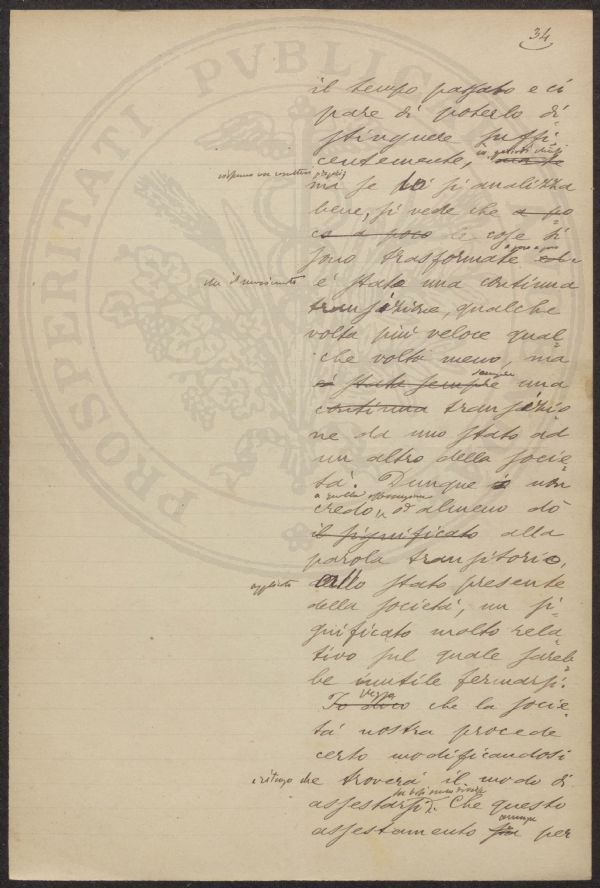 34
PROSPERITATI PVBLICAE
il tempo passato e ci
pare di poterlo di
stinguere suffi
centemente,
ma se si analizza
bene, si vede che a po
co a poco le cose si
sono trasformate a poco a poco
è stata una continua
transizione, qualche
volta più veloce qual
che volta meno, ma
è stata sempre sempre una
continua transizio
ne da uno stato ad
un altro della socie
tà. Dunque non
a quella
credo od almeno dò
il significato alla
parola transitorio,
applicata allo stato presente
della società, un si
gnificato molto rela
tivo sul quale sareb
be inutile fermarsi.
che la socie
tà nostra procede
certo modificandosi
e ritengo che troverà il modo di
assestarsi. Che questo
assestamento per